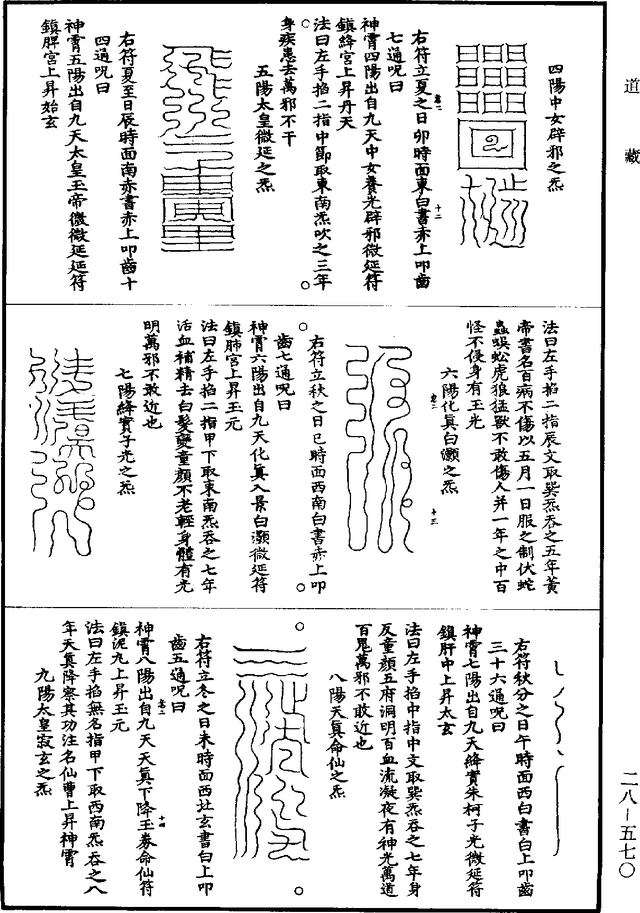 道藏
四陽中女辟邪之炁
右符立夏之日卯時面東白書赤上叩齒
七通呪曰
神霄四陽出自九天中女養光辟邪微延符
鎮絳宮上昇丹天
法曰左手掐二指中節取東南炁吹之三年
身疾患去萬邪不干
五陽太皇微延之炁
右符夏至日辰時面南赤書赤上叩齒十
四通呪曰
神霄五陽出自九天太皇玉帝徽微延延符
鎮脾宮上昇始玄
法曰左手掐二指辰文取巽炁吞之五年黃
帝書名百病不傷以五月一日服之制伏蛇
蟲蜈蚣虎狼猛獸不敢傷人并一年之中百
怪不侵身有玉光
六陽化真白灝之炁
右符立秋之日巳時面西南白書赤上叩
齒七通呪曰
神霄六陽出自九天化真入景白灝微延符
鎮肺宮上昇玉元
法曰左手掐二指甲下取東南炁吞之七年
活血補精去白髮變童顏不老輕身體有光
明萬邪不敢近也
七陽絳實子光之炁
右符秋分之日午時面西白書白上叩齒
三十六通呪曰
神霄七陽出自九天絳實朱柯子光微延符
鎮肝中上昇太玄
法曰左手掐中指中文取巽炁吞之七年身
反童顏五府洞明百血流凝夜有神光萬道
百鬼萬邪不敢近也
八陽天真命仙之炁
右符立冬之日未時面西北玄書白上叩
齒五通呪曰
神霄八陽出自九天天真下降玉券命仙符
鎮泥九上昇玉元
法曰左手掐無名指甲下取西南炁吞之八
年天真降察其功注名仙曹上昇神霄
九陽太皇寂玄之炁
二八－五七〇